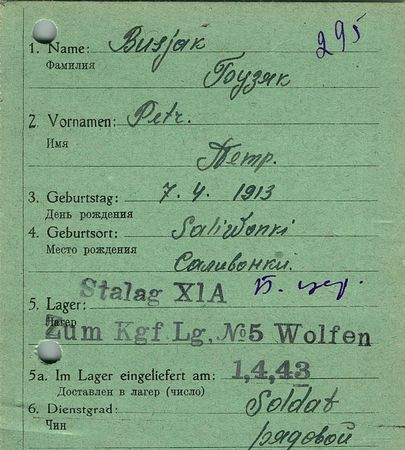 295
1. Name: Busjak
Фамилия
Бузяк
2. Vornamen: Petr.
Имя
Петр.
3. Geburtstag: 7. 4. 1913
День рождения
4. Geburtsort: Saliwonki
Место рождения
Саливонки.
Stalag XIA
5. Lager:
Лагерь
Zum Kgf Lg. №5 Wolfen
5a. Im Lager eingeliefert am: 1,4,43
Доставлен в лагерь (число)
6. Dienstgrad: Soldat
Чин
рядовой